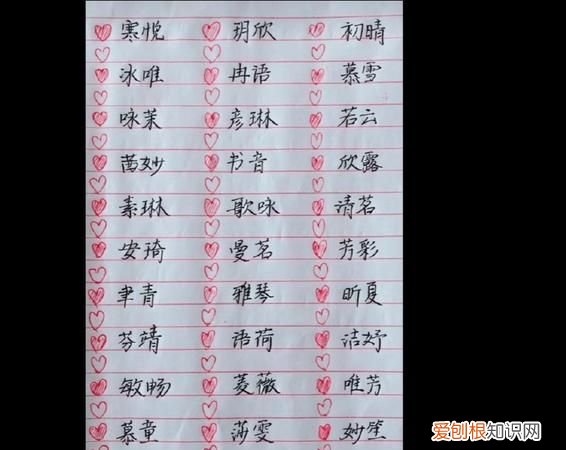 寒悦 玥欣 初晴
冰唯 冉语 慕雪
咏茉 彦琳 若云
茵妙 书音 欣露
素琳 歌咏 清茗
安琦 曼茗 芳彩
聿青 雅琴 昕夏
芬靖 语荷 洁妤
敏畅 菱薇 唯芳
慕童 莎雯 妙笙
爱刨根知识网